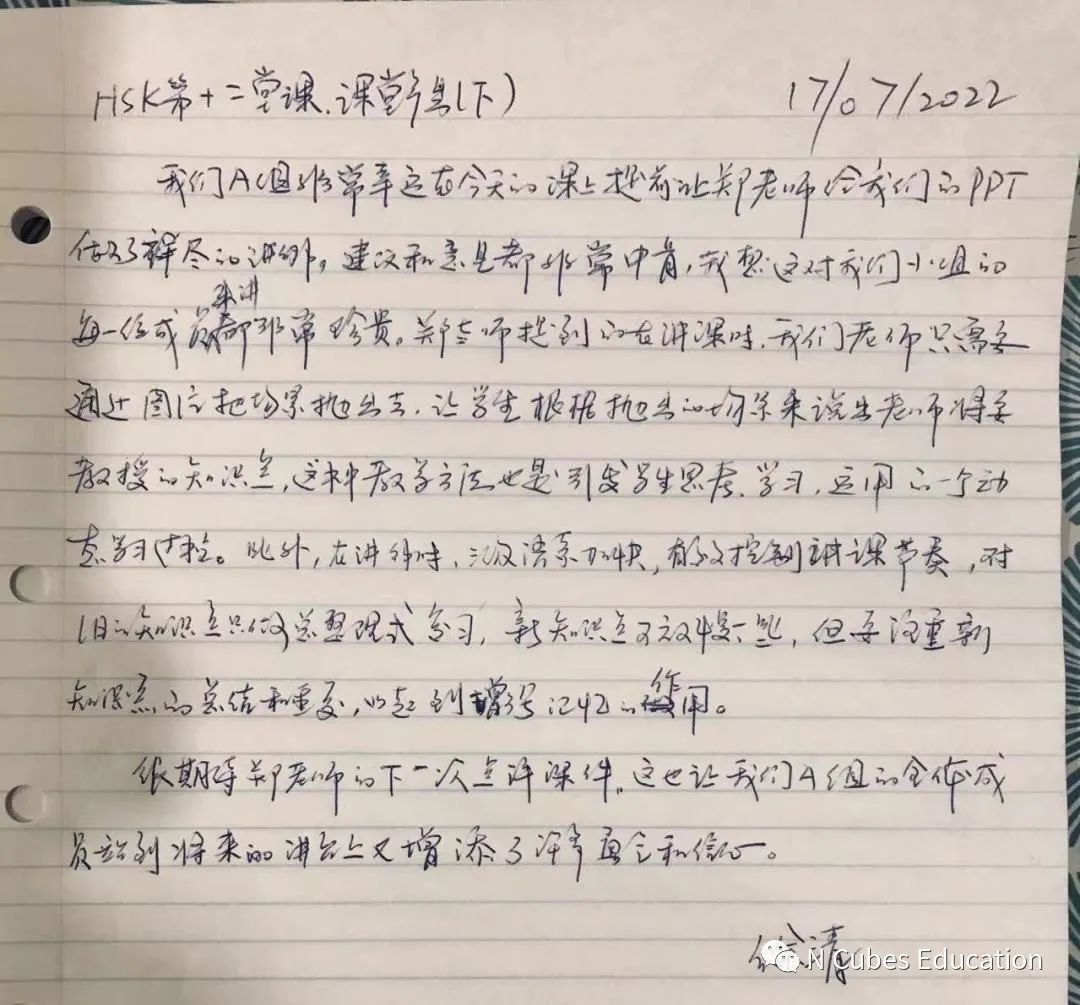 HSK第十二堂课.课堂笔记(下) 17/07/2022
我们A组非常幸运在今天的课上提前让郑老师给我们的PPT
做了详尽的讲解。建议和意见都非常中肯,我想这对我们小组的
来讲
每一位成员都非常珍贵。郑老师提到的在讲课时,我们老师只需要
通过图片把场景抛出去,让学生根据抛出的场景来说出老师将要
教授的知识点,这种教学方法也是引发学生思考、学习,运用的一个动
态学习过程。此外,在讲解时,语系加快,有效控制讲课节奏,对
旧的知识点只做总整理式复习,新知识点可放慢一些,但要注重新
知识点的总结和重复,以起到增强记忆的作用。
很期待郑老师的下一次点评课件。这也让我们A组的全体成
员站到将来的讲台上又增添了许多和信心。
清
N Cubes Education